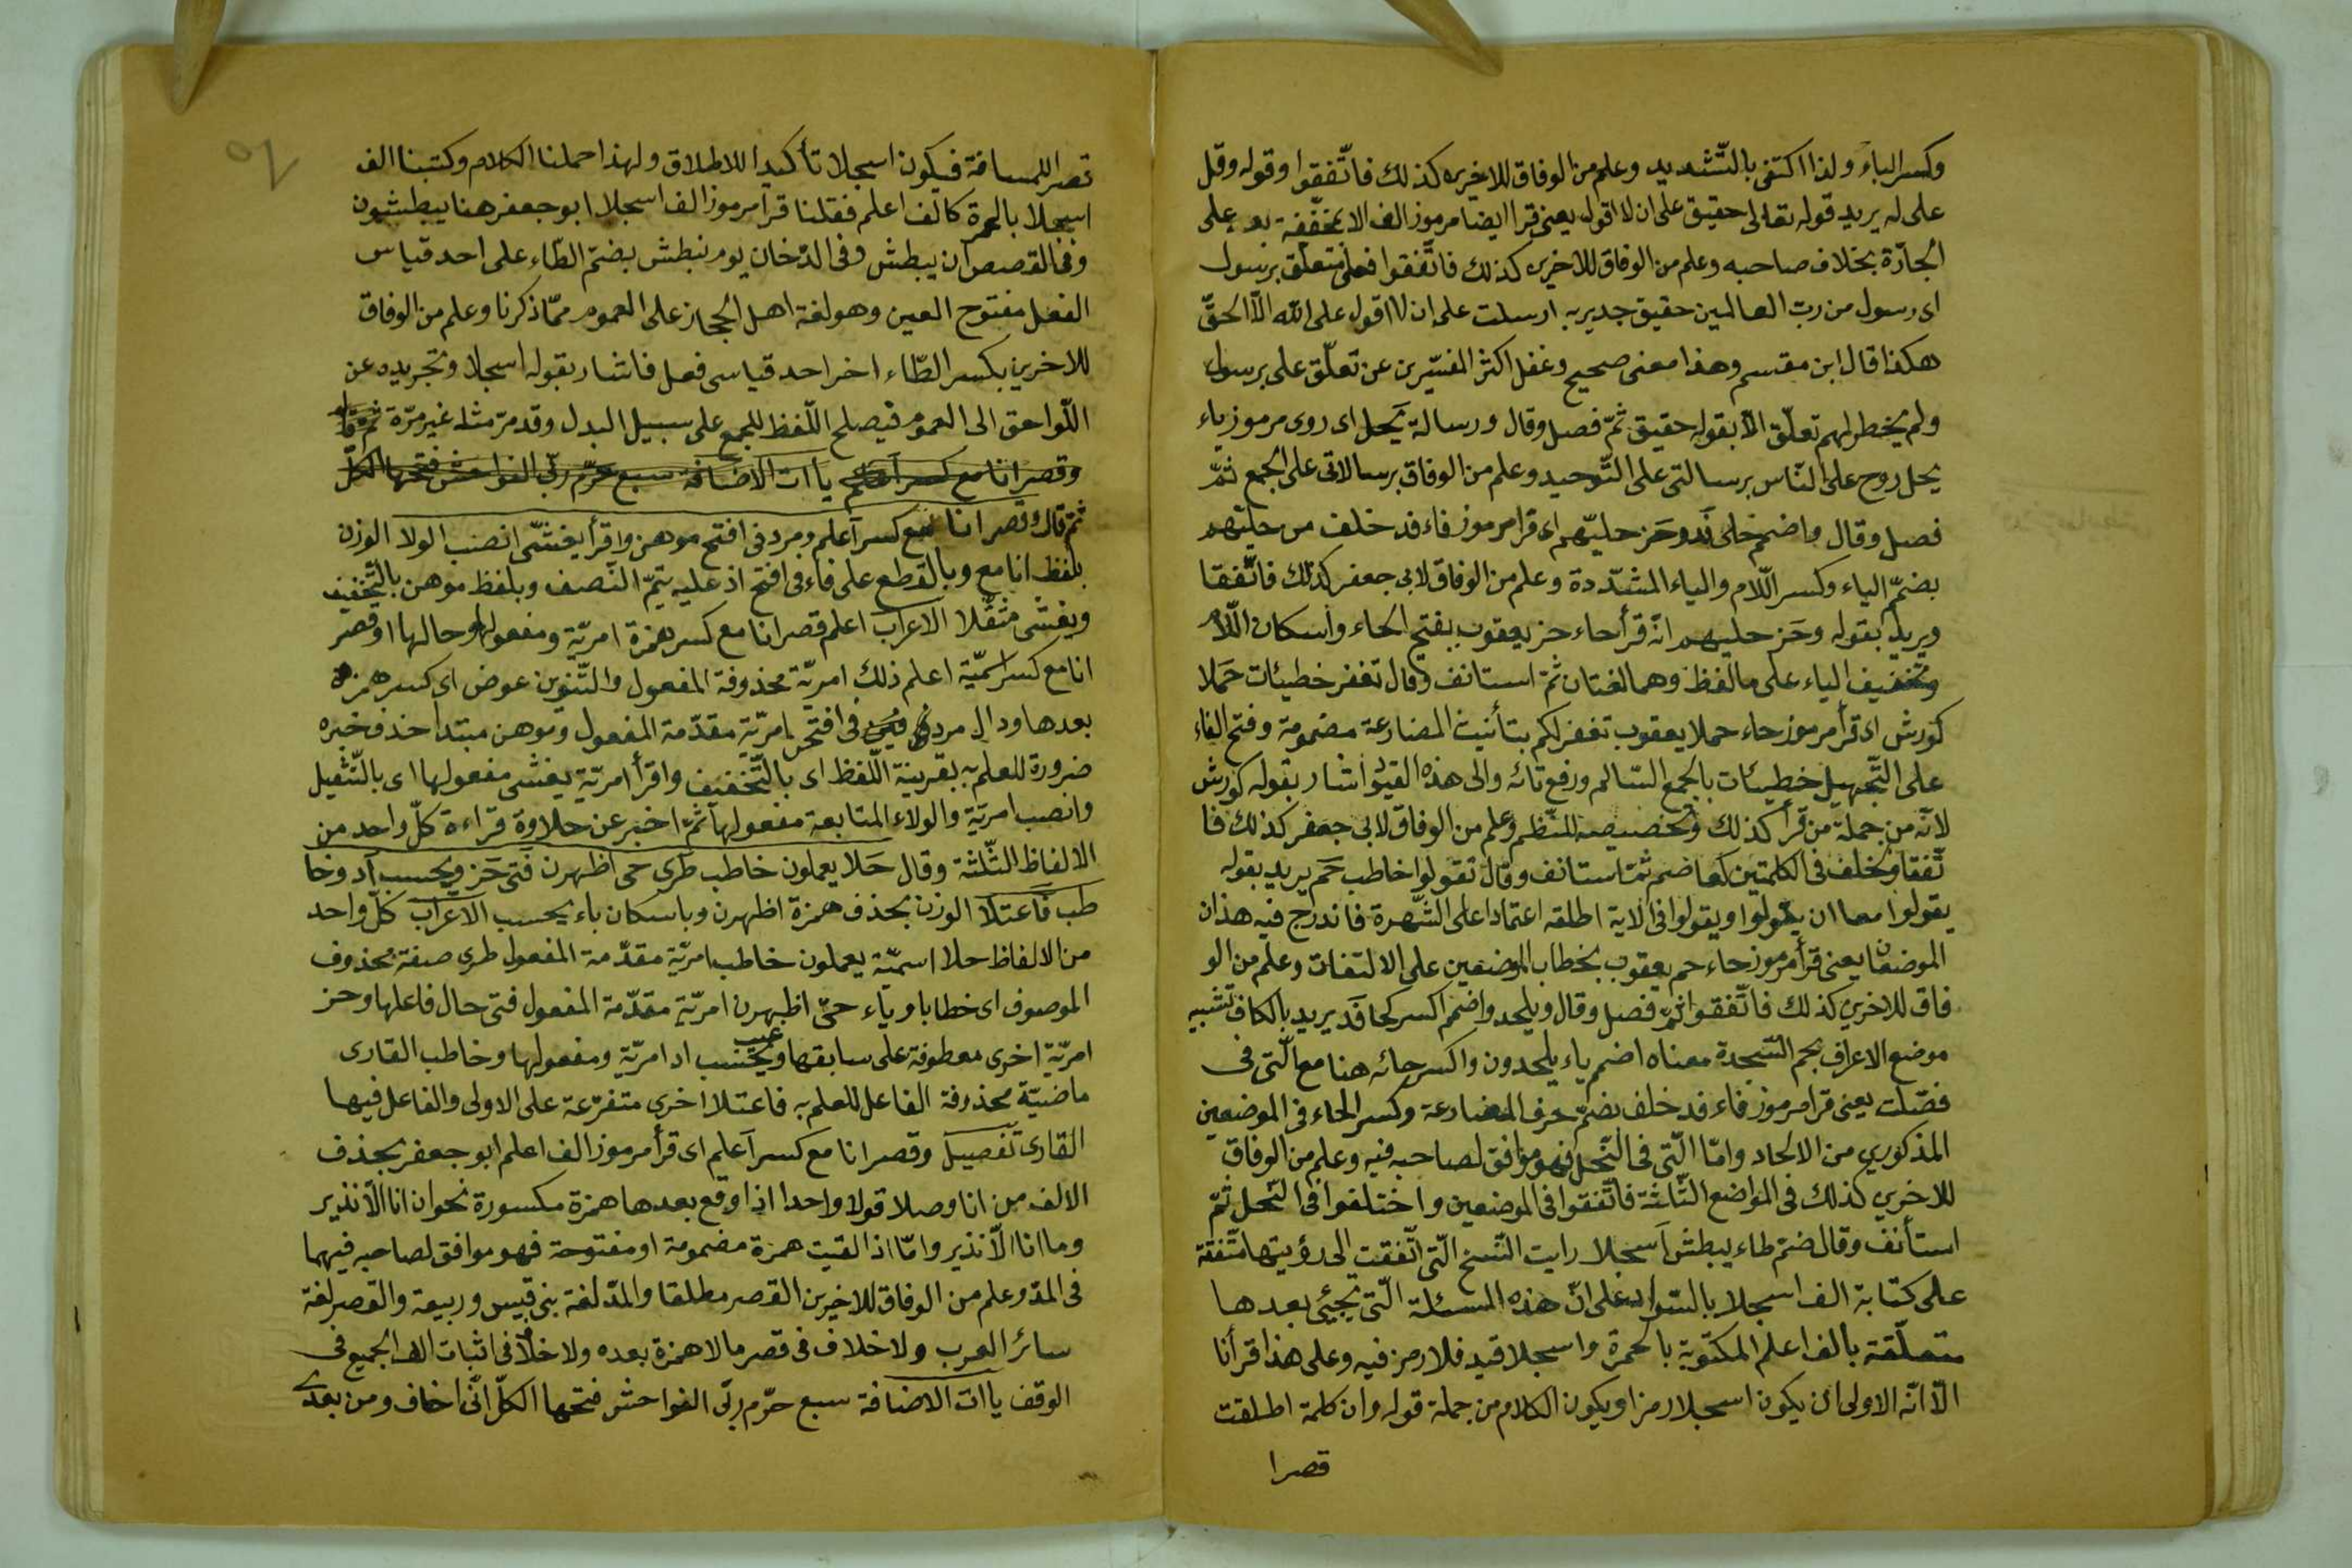 وكسر الباء ولذا اكتفى بالتّشديد وعلم من الوفاق للاخرين كذلك فاتّفقوا وقوله وقل
على له يريد قوله تعالى حقيق على ان لا اقول يعنى قرا ايضا مرموز الف الا بمخفّفة بعد على
الجارّة بخلاف صاحبه وعلم من الوفاق للاخرين كذلك فاتّفقوا فعلى متعلّق برسول
اى رسول من ربّ العالمين حقيق جدير به ارسلت على ان لا اقول على الله الّا الحقّ
هكذا قال ابن مقسم وهذا معنى صحيح وغفل اكثر المفسّرين عن تعلّق على برسول
ولم يخطر لهم تعلّق الّا بقوله حقيق ثمّ فصل وقال ورسالة يحل اى روى مرموز ياء
يحل روح على النّاس برسالتى على التّوحيد وعلم من الوفاق برسالاتى على الجمع ثمّ
فصل وقال واضمم حلى فد وحز حليّهم اى قرا مرموز فاء فد خلف من حليّهم
بضمّ الياء وكسر اللّام والياء المشدّدة وعلم من الوفاق لابى جعفر كذلك فاتّفقا
ويريد بقوله وحز حليهم انّه قرأ حاء حز يعقوب بفتح الحاء واسكان اللّام
وتخفيف الياء على ما لفظ وهما لغتان ثمّ استانف وقال تغفر خطيئات حملا
كورش اى قرأ مرموز حاء حملا يعقوب تغفر لكم بتأنيث المضارعة مضمومة وفتح الفاء
على التّجهيل خطيئات بالجمع السّالم ورفع تائه والى هذه القيود اشار بقوله كورش
لانّه من جملة من قرأ كذلك وتخصيصه للنّظم وعلم من الوفاق لابى جعفر كذلك فا
تّفقا وبخلف فى الكلمتين كما ضم ثمّ استانف وقال تقولوا خاطب حم يريد بقوله
يقولوا معا ان يقولوا ويقولوا فى الاية اطلقه اعتمادا على الشّهرة فاندرج فيه هذان
الموضعان يعنى قرأ مرموز حاء حم يعقوب بخطاب الموضعين على الالتفات وعلم من الو
فاق للاخرين كذلك فاتّفقوا ثمّ فصل وقال ويلحد واضمم اكسر كحا فد يريد بالكاف تشبيه
موضع الاعراف بحم السّجدة معناه اضمم ياء يلحدون واكسر حائه هنا مع الّتى فى
فصّلت يعنى قرا مرموز فاء فد خلف بضمّ حرف المضارعة وكسر الحاء فى الموضعين
المذكورين من الالحاد وامّا الّتى فى النّحل فهو موافق لصاحبه فيه وعلم من الوفاق
للاخرين كذلك فى المواضع الثّلثة فاتّفقوا فى الموضعين واختلفوا فى النّحل ثمّ
استأنف وقال ضم طاء يبطش اسجلا رايت النّسخ الّتى اتّفقت الى رؤيتها متّفقة
على كتابة الف اسجلا بالسّواد على انّ هذه المسئلة الّتى يجيئ بعدها
متعلّقة بالف اعلم المكتوبة بالحمرة واسجلا قيد فلا رمز فيه وعلى هذا قرأنا
الّا انّه الاولى ان يكون اسجلا رمزا ويكون الكلام من جملة قوله وان كلمة اطلقت
قصرا
تصر اللمسافة فيكون اسجلا تأكيدا للاطلاق ولهذا حملنا الكلام وكتبنا الف
اسجلا بالحمرة كالف اعلم فقلنا قرا مرموز الف اسجلا ابو جعفر هنا يبطشون
وفى القصص ان يبطش وفى الدّخان يوم نبطش بضمّ الطّاء على احد قياس
الفعل مفتوح العين وهو لغة اهل الحجاز على العموم ممّا ذكرنا وعلم من الوفاق
للاخرين بكسر الطّاء اخر احد قياسى فعل فاشار بقوله اسجلا وتجريده عن
اللّواحق الى العموم فيصلح اللّفظ للجمع على سبيل البدل وقد مرّ مثله غير مرّة ثمّ قال
وقصر انا مع كسر اعلم ياات الاضافة سبع حرّم ربّى الفواحش فتحها الكلّ
ثمّ قال وقصر انا مع كسر اعلم ومردفى افتح موهن واقرأ يغشّى انصب الولا الوزن
بلفظ انا مع وبالقطع على فاء فى افتح اذ عليه يتمّ النّصف وبلفظ موهن بالتّخفيف
ويغشّى مثقّلا الاعراب اعلم قصر انا مع كسر همزة امريّة ومفعولها وحالها او قصر
انا مع كسر اسميّة اعلم ذلك امريّة محذوفة المفعول والتّنوين عوض اى كسر همزة
بعدها ودال مردفى فى افتحن امريّة مقدّمة المفعول وموهن مبتدا حذف خبره
ضرورة للعلم به بقرينة اللّفظ اى بالتّخفيف واقرأ امريّة يغشّى مفعولها اى بالتّثقيل
وانصب امريّة والولاء المتابعة مفعولها ثمّ اخبر عن حلاوة قراءة كلّ واحد من
الالفاظ الثّلثة وقال حلا يعملون خاطب طرى حى اظهرن فتى حز ويحسب اد وخا
طب فاعتلا الوزن بحذف همزة اظهرن وباسكان باء يحسب الاعراب كلّ واحد
من الالفاظ حلا اسميّة يعملون خاطب امريّة مقدّمة المفعول طرى صفة محذوف
الموصوف اى خطابا وياء حىّ اظهرن امريّة مقدّمة المفعول فتى حال فاعلها وحز
امريّة اخرى معطوفة على سابقها ويحسب اد امريّة ومفعولها وخاطب القارى
ماضيّة محذوفة الفاعل للعلم به فاعتلا اخرى متفرّعة على الاولى والفاعل فيها
القارى تفصيل وقصر انا مع كسر اعلم اى قرأ مرموز الف اعلم ابو جعفر بحذف
الالف من انا وصلا قولا واحدا اذا وقع بعدها همزة مكسورة نحو ان انا الّا نذير
وما انا الّا نذير وامّا اذا لقيت همزة مضمومة او مفتوحة فهو موافق لصاحبه فيهما
فى المدّ وعلم من الوفاق للاخيرين القصر مطلقا والمدّ لغة بنى قيس وربيعة والقصر لغة
سائر العرب ولا خلاف فى قصر ما لا همزة بعده ولا خلاف فى اثبات الف الجميع فى
الوقف ياات الاضافة سبع حرّم ربّى الفواحش فتحها الكلّ انّى اخاف ومن بعدى